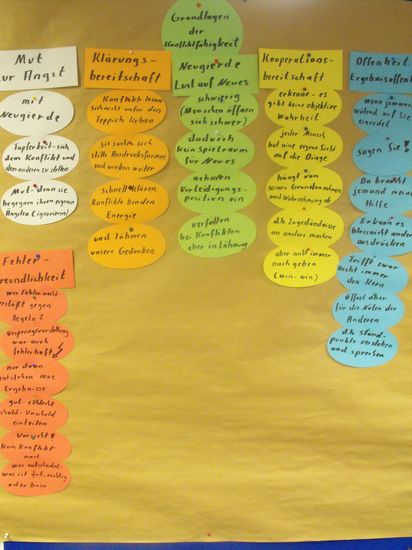 Grundlagen
der
Konfliktfähigkeit
Mut
zur Angst
mit
Neugierde
Tapferkeit-sich
dem Konflikt und
den anderen zu stellen
Mut-denn sie
begegnen ihren eigenen
Ängsten (ignorieren)
Klärungs-
bereitschaft
Konflikte lernen
sich nicht unter den
Teppich kehren
sie suchen sich
stille Ausdrucksformen
und wirken weiter
schnell klären
Konflikte binden
Energie
und lähmen
unsere Gedanken
Neugierde
Lust auf Neues
schwierig
(Menschen öffnen
sich schwer)
dadurch
kein Spielraum
für Neues
nehmen
Verteidigungs-
position ein
verfallen
bei Konflikten
eher in Lähmung
Kooperations-
bereitschaft
erkenne - es
gibt keine objektive
Wahrheit
jeder Mensch
hat seine eigene Sicht
auf die Dinge
hängt von
seinen Grundannahmen
und Wahrnehmung ab
d.h. Zugeständnisse
an andere machen
aber nicht immer
nach geben
(win-win)
Offenheit
Ergebnisoffen
wenn jemand
wütend auf Sie
einredet
sagen Sie!
Du brauchst
jemand meine
Hilfe
Er kann es
bloss nicht anders
ausdrücken
Trifft zwar
nicht immer
den Kern
öffnet aber
für die Nöte der
Anderen
d.h. Stand-
punkte verstehen
und sprechen
Fehler-
freundlichkeit
wer Fehler macht
verstößt gegen
Regeln?
Ursprungsvorstellung
war auch
fehlerhaft
nur dann
entstehen neue
Ergebnisse
gut-schlecht
Schuld-Unschuld
einteilen
Vorsicht!
kein Konflikt
wer entscheidet
was ist gut-richtig
oder böse